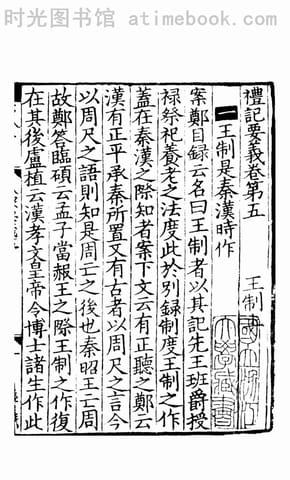 时光图书馆 - atimebook.com
禮記要義卷第五 王制
一 王制是秦漢時作
案鄭目録云名曰王制者以其記先王班爵授
禄祭祀養老之法度此於別録制度王制之作
蓋在秦漢之際知者案下文云有正聽之鄭云
漢有正平承秦所置又有古者以周尺之言今
以周尺之語則知是周亡之後也秦昭王亡周
故鄭答臨碩云孟子當赧王之際王制之作復
在其後盧植云漢孝文皇帝令博士諸生作此